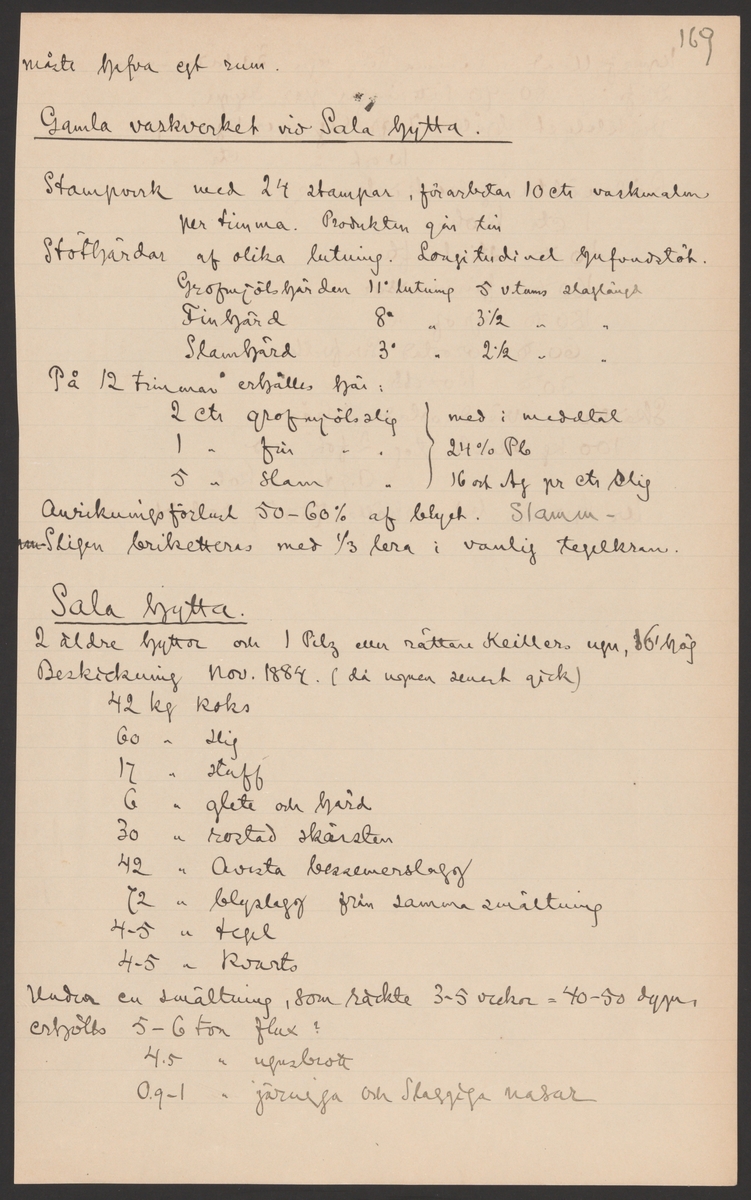 169
måste hafva egt rum.
Gamla vaskverket vid Sala hytta.
Stampverk med 24 stampar, förarbetar 10 ctr vaskmalm
per timma. Produkten går till
Stöthärdar af olika lutning. Longitudinel hufvudstöt.
Grofmjölshärden 11° lutning 5 v.tums slaglängd
Finhärd 8° " 3 1/2 " "
Slamhärd 3° " 2 1/2 " "
På 12 timmar erhålles här:
2 ctr grofmjölsslig } med i medeltal
1 " fin " " } 24% Pb
5 " slam " } 16 ort Ag pr ctr slig
Anrikningsförlust 50-60% af blyet. Slamm-
Sligen briketteras med 1/3 lera i vanlig tegelkran.
Sala hytta.
2 äldre hyttor och 1 Pilz eller rättare Keillers ugn, 16' hög
Beskickning Nov. 1884. (då ugnen senast gick)
42 kg koks
60 " slig
17 " stuff
6 " glete och härd
30 " rostad skärsten
42 " Avesta bessemerslagg
72 " blyslagg från samma smältning
4-5 " tegel
4-5 " kvarts
Under en smältning, som räckte 3-5 veckor = 40-50 dygn,
erhölls 5-6 ton flux ?
4.5 " ugnsbrott
0.9-1 " järniga och slaggiga nasar